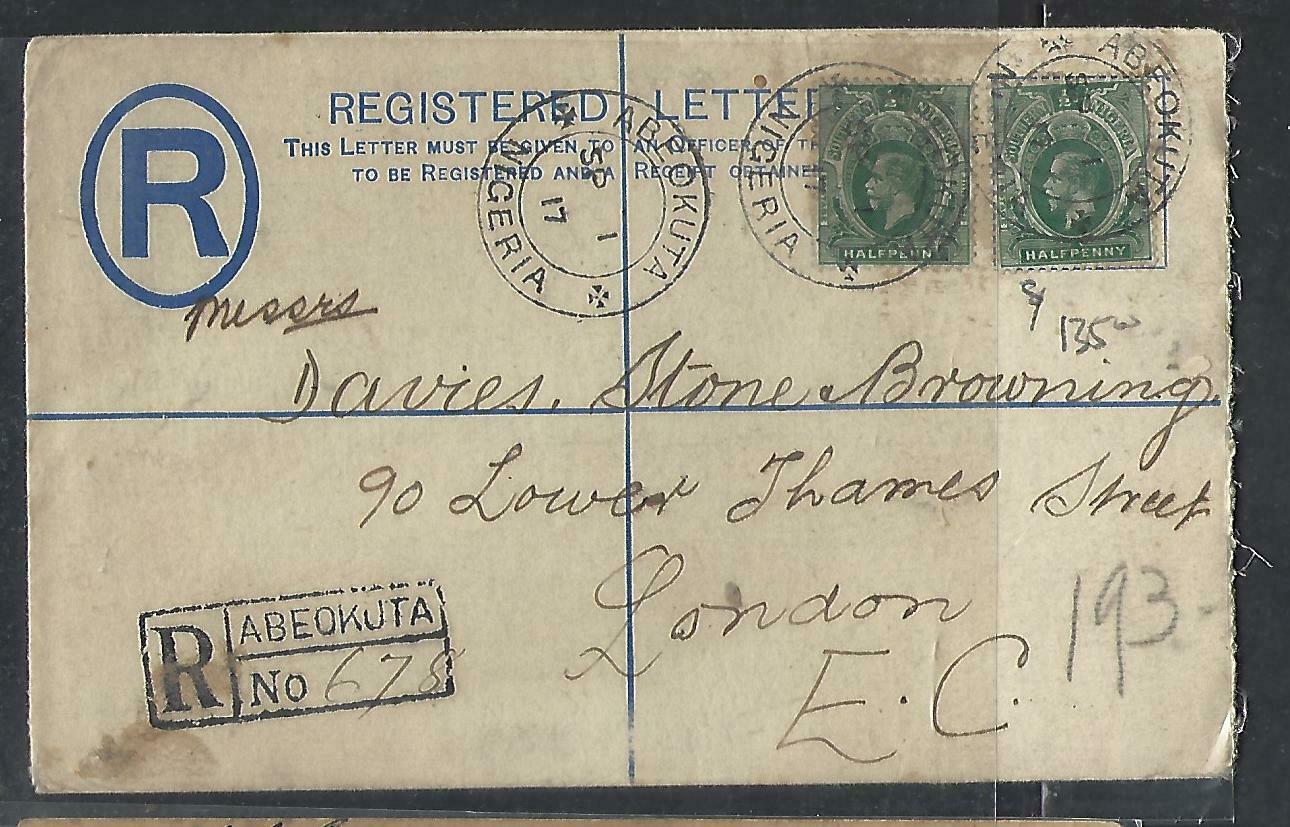 REGISTERED LETTER
THIS LETTER MUST BE GIVEN TO AN OFFICER OF
TO BE REGISTERED AND A RECEIPT OBTAINED
R
ABEOKUTA
SP 1
17
NIGERIA
ABEOKUTA
NIGERIA
ABEOKUTA
SOUTHERN NIGERIA
HALFPENNY
SOUTHERN NIGERIA
HALFPENNY
Messrs
135
Davies, Stone, Browning
90 Lower Thames Street
London
E.C.
193-
R
ABEOKUTA
No 678